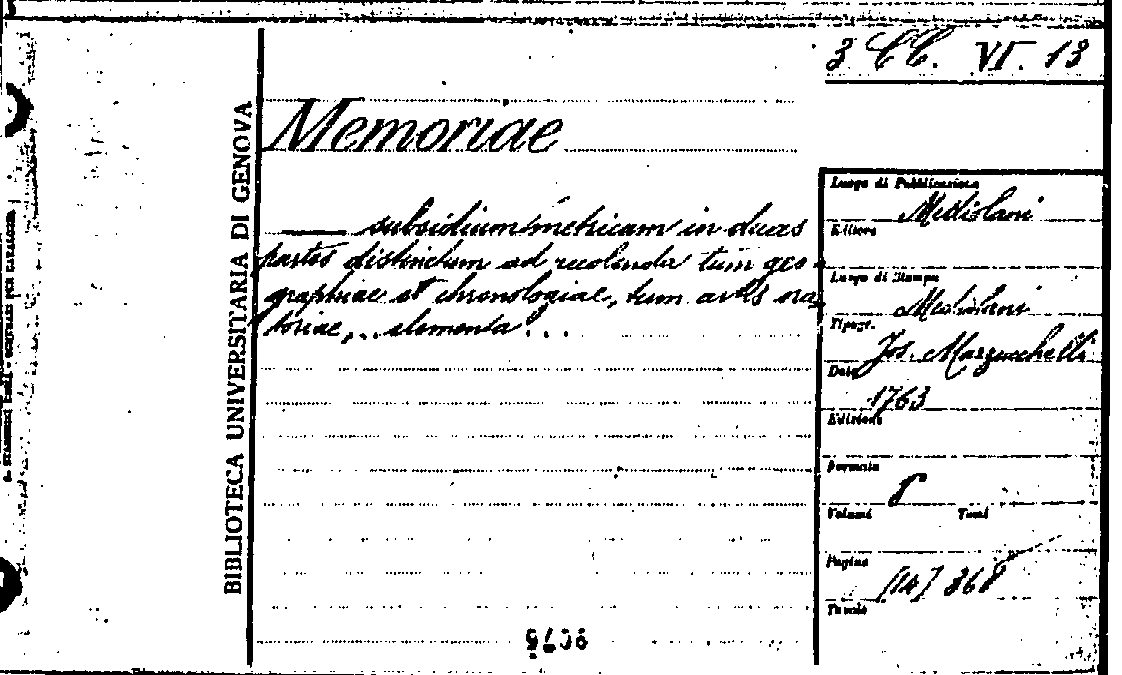 3 CC. VI. 13
BIBLIOTECA UNIVERSITARIA DI GENOVA
Memoriae
— subsidium metricam in duas
partes distinctum ad recolenda tum geo-
graphiae et chronologiae, tum artis ora-
toriae,.. elementa...
Luogo di Pubblicazione
Mediolani
Editore
Luogo di Stampa
Mediolani
Tipogr.
Jos. Marzucchelli
Data
1763
Edizione
Formato
8
Volumi Tomi
Pagine
[14] 368
Tavole